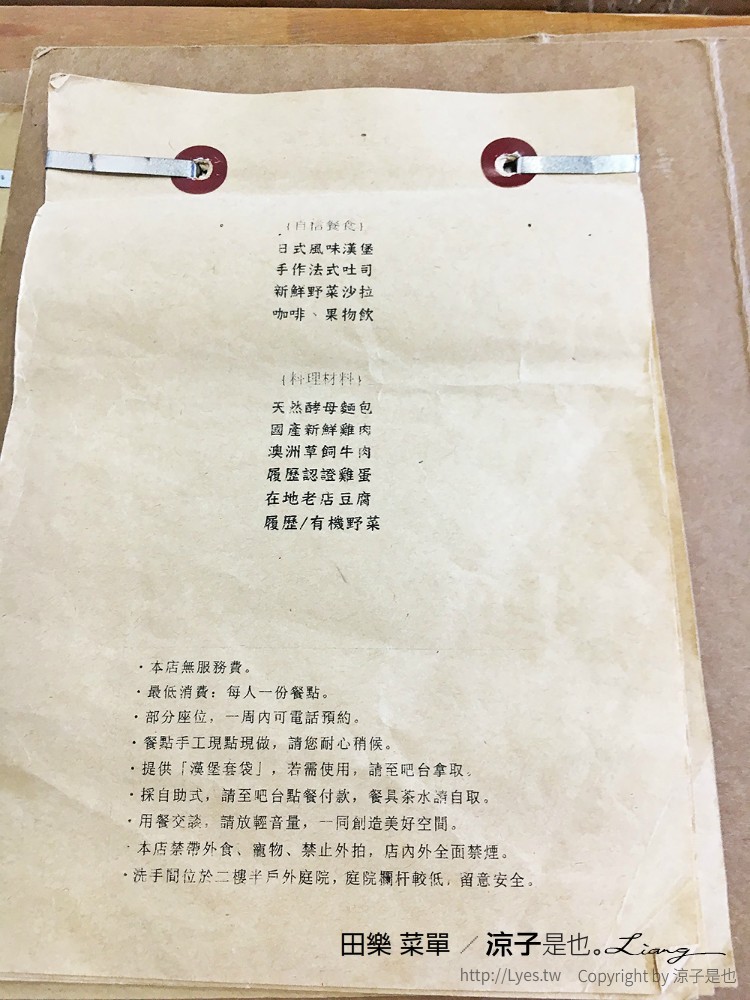 {自信餐食}
日式風味漢堡
手作法式吐司
新鮮野菜沙拉
咖啡、果物飲
{料理材料}
天然酵母麵包
國產新鮮雞肉
澳洲草飼牛肉
履歷認證雞蛋
在地老店豆腐
履歷/有機野菜
・本店無服務費。
・最低消費：每人一份餐點。
・部分座位，一周內可電話預約。
・餐點手工現點現做，請您耐心稍候。
・提供「漢堡套袋」，若需使用，請至吧台拿取。
・採自助式，請至吧台點餐付款，餐具茶水請自取。
・用餐交談，請放輕音量，一同創造美好空間。
・本店禁帶外食、寵物、禁止外拍，店內外全面禁煙。
・洗手間位於二樓半戶外庭院，庭院欄杆較低，留意安全。
田樂 菜單 ／ 涼子是也。Liang
http://Lyes.tw Copyright by 涼子是也